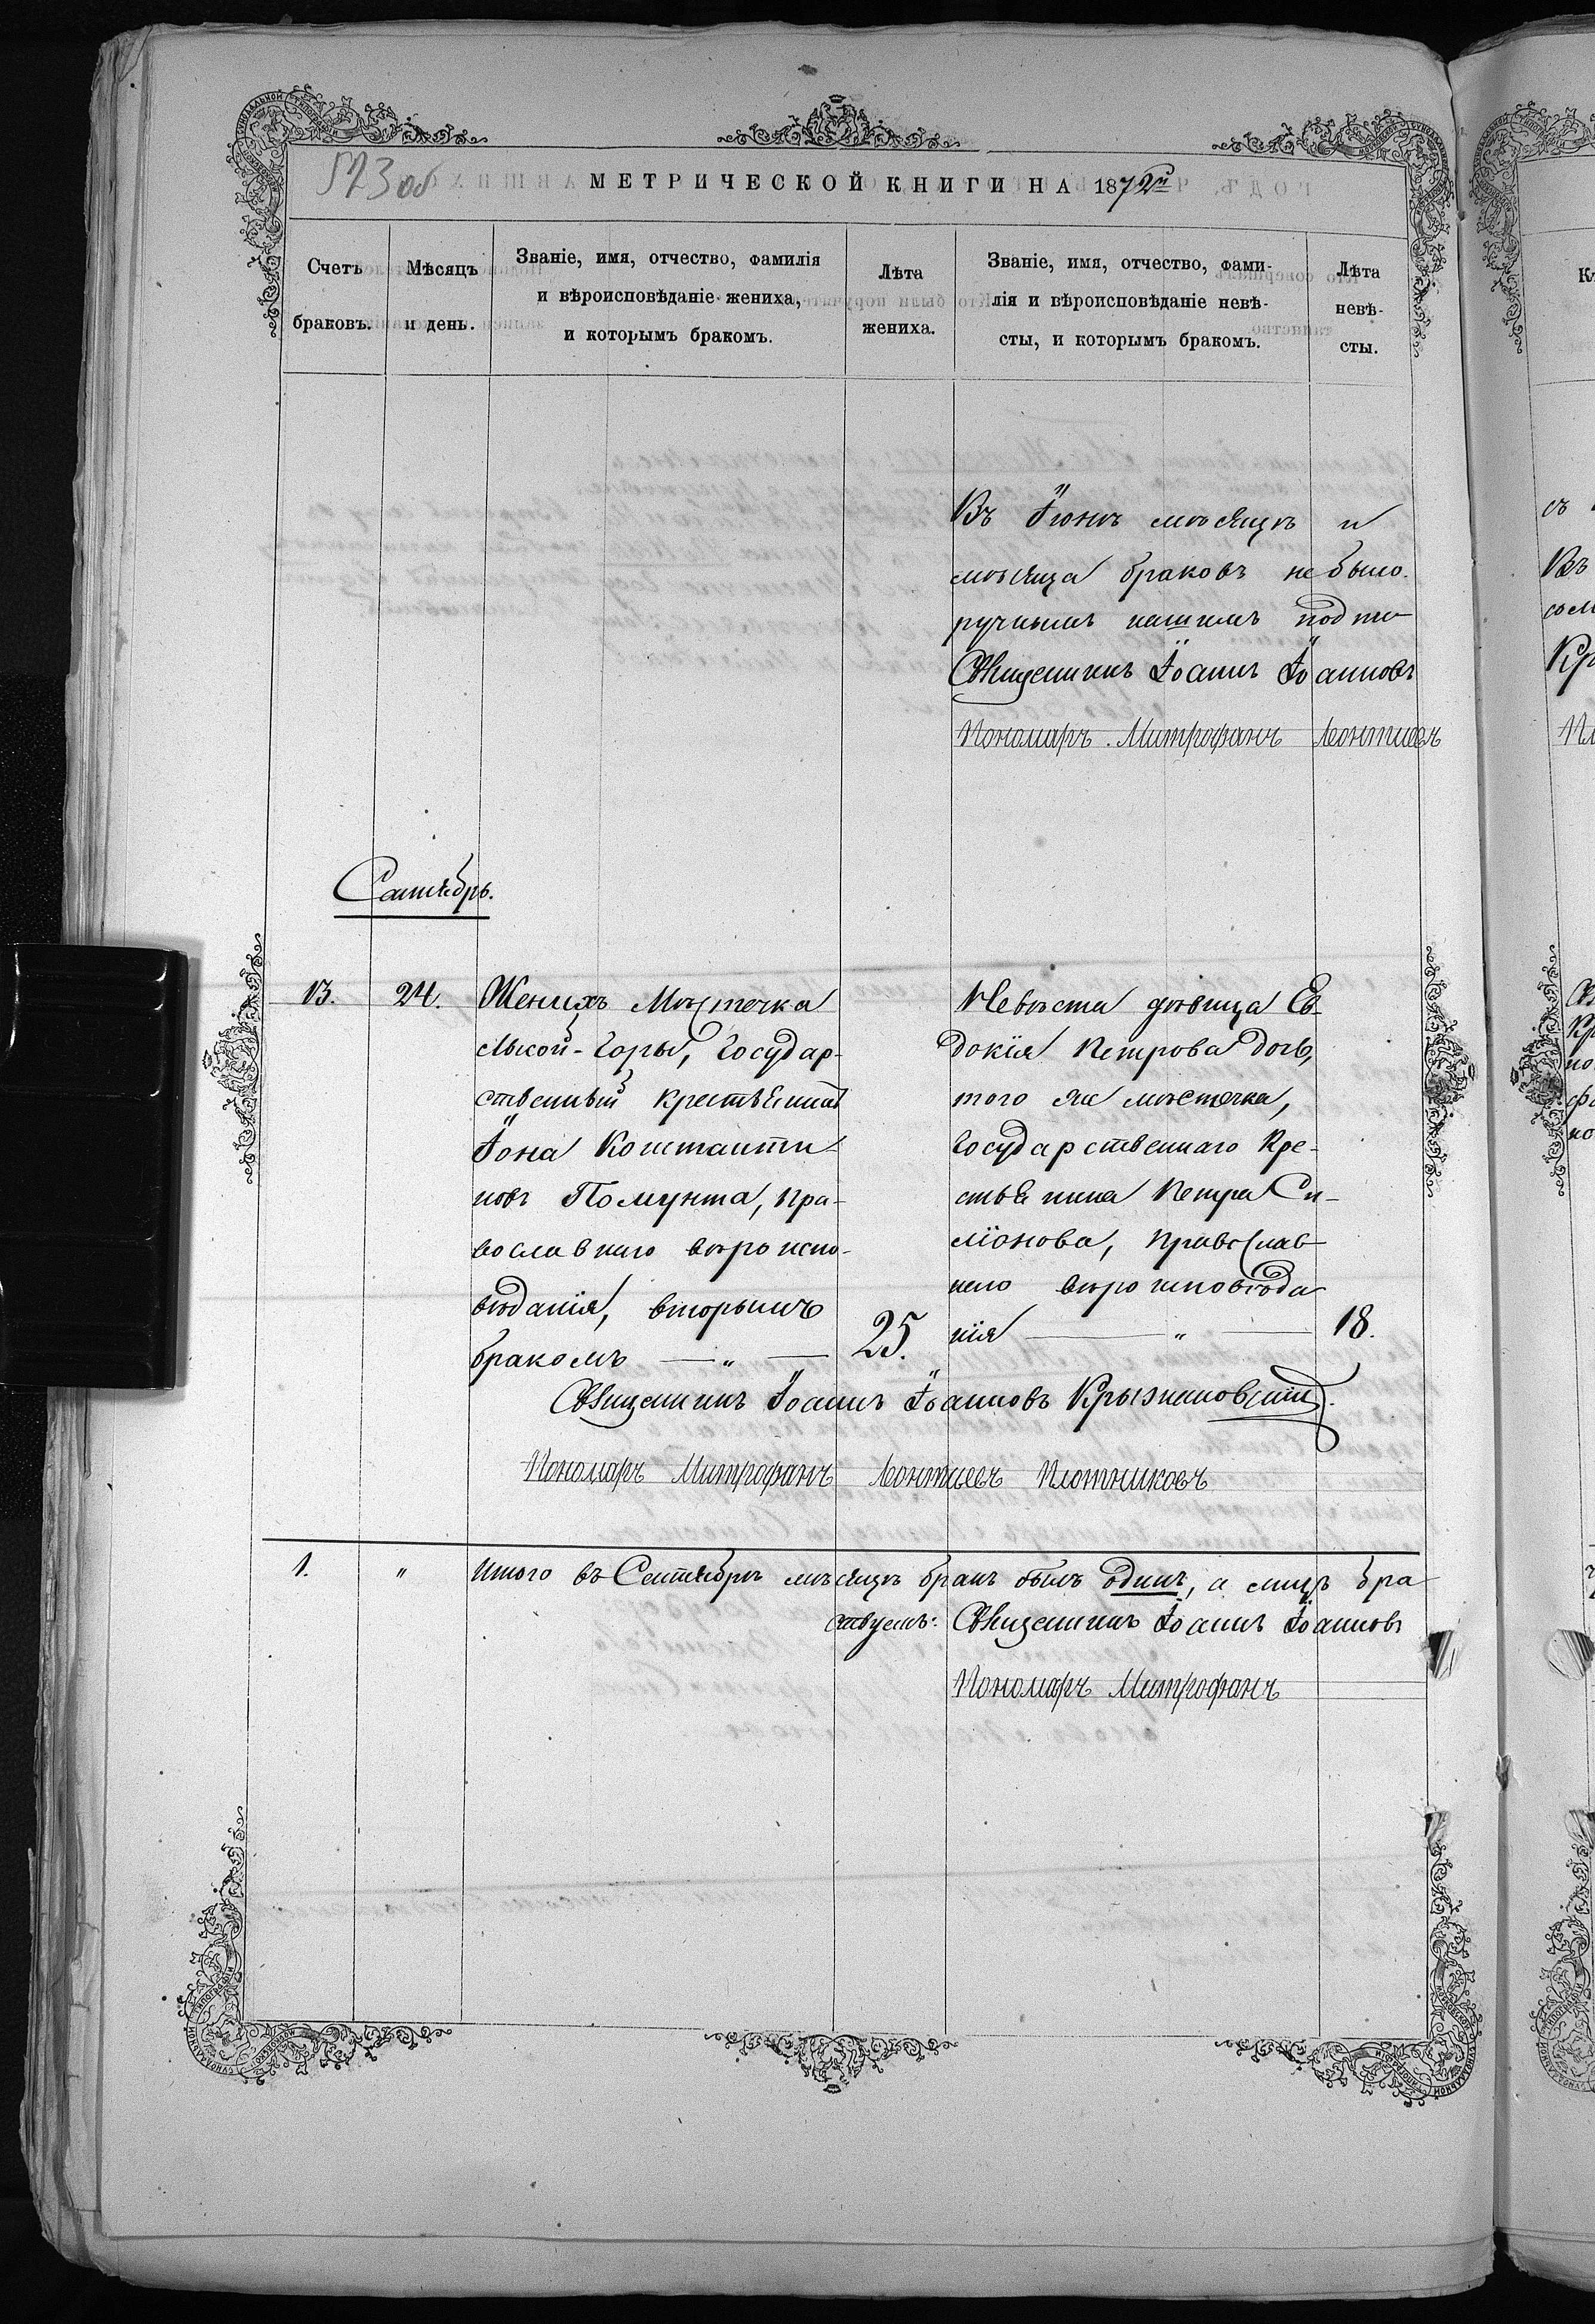 523 об
МЕТРИЧЕСКОЙ КНИГИ НА 1872й
Счетъ браковъ.
Мѣсяцъ и день.
Званіе, имя, отчество, фамилія
и вѣроисповѣданіе жениха,
и которымъ бракомъ.
Лѣта жениха.
Званіе, имя, отчество, фами-
лія и вѣроисповѣданіе невѣ-
сты, и которымъ бракомъ.
Лѣта невѣ-
сты.
Въ Іюнѣ мѣсяцѣ и
мѣсяца браковъ небыло.
ручнымъ нашимъ подпи
Священникъ Іоаннъ Іоанновъ
Пономарь Митрофанъ Леонтиевъ
Сентябрь.
13. 24. Женихъ Мѣстечка
ськой-Горы, государ-
ственный крестьянинъ
Іона Константи-
новъ Помунта, пра-
вославнаго вѣроиспо-
вѣданія, вторымъ
бракомъ — „ — 25.
Невѣста дѣвица Ев-
докія Петрова дочь,
того же мѣстечка,
государственнаго кре-
стьянина Петра Си-
міонова, православ
наго вѣроисповѣда
нія — „ — 18.
Священникъ Іоаннъ Іоанновъ Крыжановскій.
Пономарь Митрофанъ Леонтьевъ Плотниковъ
1. „ Итого въ Сентябрѣ мѣсяцѣ бракъ былъ одинъ, а лицъ бра
ствуемъ: Священникъ Іоаннъ Іоанновъ
Пономарь Митрофанъ